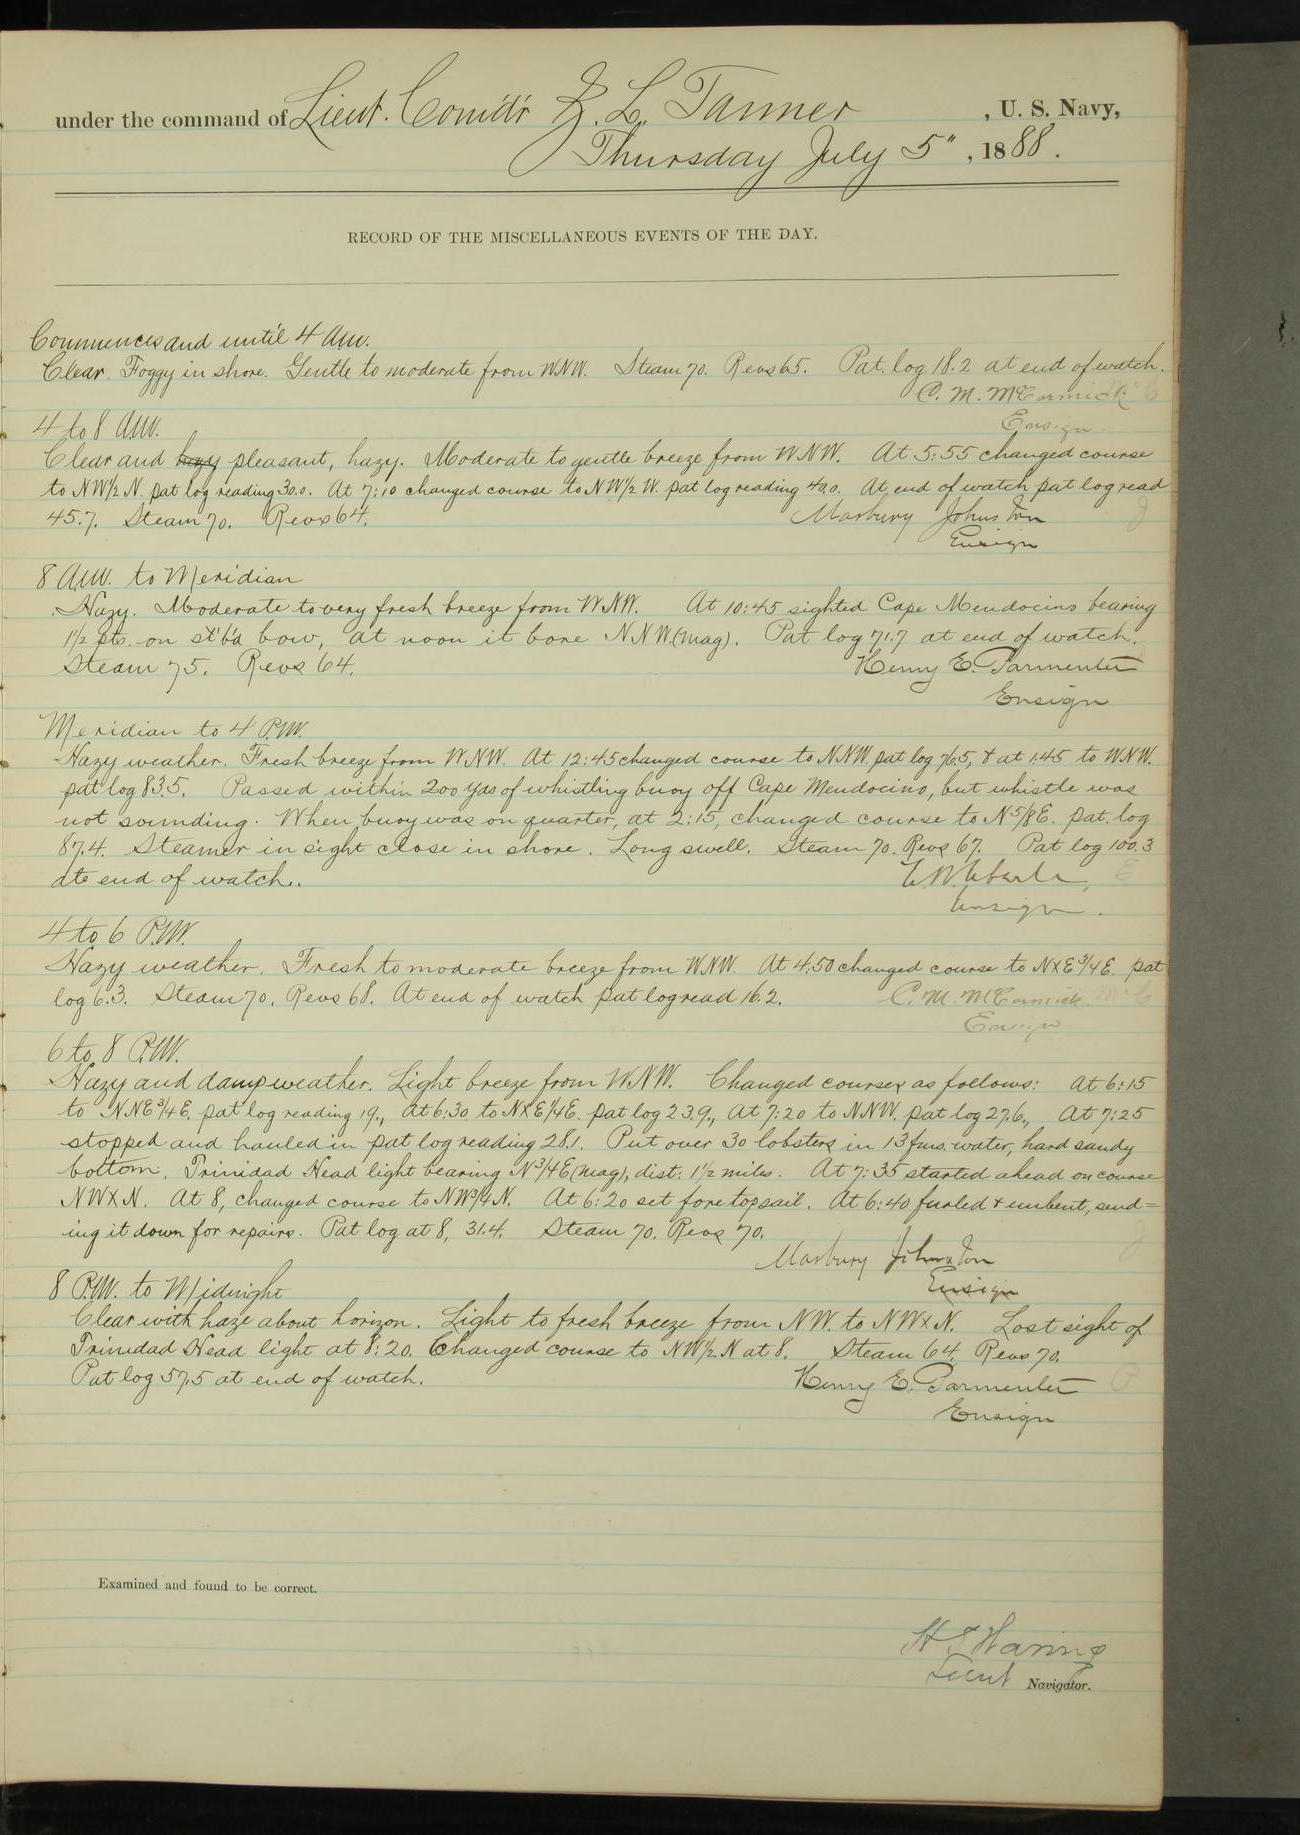 under the command of Lieut. Com'd'r Z. L. Tanner, U. S. Navy,
Thursday July 5", 1888.
RECORD OF THE MISCELLANEOUS EVENTS OF THE DAY.
Commences and until 4 A.M.
Clear. Foggy in shore. Gentle to moderate from WNW. Steam 70. Revs 65. Pat. log 18.2 at end of watch.
C. M. McCormick
Ensign.
4 to 8 A.M.
Clear and hazy pleasant, hazy. Moderate to gentle breeze from WNW. At 5:55 changed course
to NW1/2N. pat log reading 30.0. At 7:10 changed course to NW1/2W. pat log reading 40.0. At end of watch pat log read
45.7. Steam 70. Revs 64. Marbury Johnston
Ensign
8 A.M. to Meridian
Hazy. Moderate to very fresh breeze from WNW. At 10:45 sighted Cape Mendocino bearing
1 1/2 pts. on st'b'd bow, at noon it bore NNW.(mag). Pat log 71.7 at end of watch.
Steam 75. Revs 64. Henry E. Parmenter
Ensign
Meridian to 4 P.M.
Hazy weather. Fresh breeze from WNW. At 12:45 changed course to NNW. pat log 76.5, & at 1:45 to WNW.
pat log 83.5. Passed within 200 yds of whistling buoy off Cape Mendocino, but whistle was
not sounding. When buoy was on quarter, at 2:15, changed course to N5/8E. pat. log
87.4. Steamer in sight close in shore. Long swell. Steam 70. Revs 67. Pat log 100.3
at end of watch. E. W. Eberle,
Ensign.
4 to 6 P.M.
Hazy weather. Fresh to moderate breeze from WNW. At 4:50 changed course to NxE3/4E. pat
log 6.3. Steam 70. Revs 68. At end of watch pat log read 16.2. C. M. McCormick
Ensign
6 to 8 P.M.
Hazy and damp weather. Light breeze from WNW. Changed courses as follows: At 6:15
to NNE3/4E. pat log reading 19., At 6:30 to NxE1/4E. pat log 23.9., At 7:20 to NNW. pat log 27.6., At 7:25
stopped and hauled in pat log reading 28.1. Put over 30 lobsters in 13 fms. water, hard sandy
bottom. Trinidad Head light bearing N3/4E(mag), dist: 1 1/2 miles. At 7:35 started ahead on course
NWxN. At 8, changed course to NW3/4N. At 6:20 set foretopsail. At 6:40 furled & unbent, send=
ing it down for repairs. Pat log at 8, 31.4. Steam 70. Revs 70.
Marbury Johnston
Ensign
8 P.M. to Midnight
Clear with haze about horizon. Light to fresh breeze from NW. to NWxN. Lost sight of
Trinidad Head light at 8:20. Changed course to NW1/2N at 8. Steam 64. Revs 70.
Pat log 57.5 at end of watch. Henry E. Parmenter
Ensign
Examined and found to be correct.
H S Waring
Lieut Navigator.